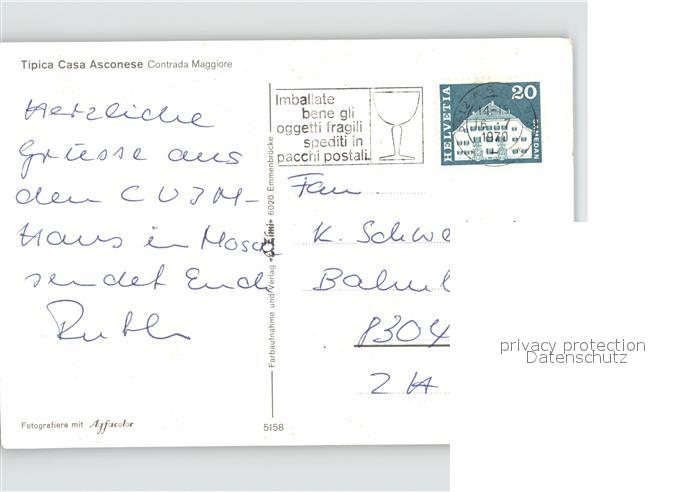 Tipica Casa Asconese Contrada Maggiore
Herzliche
Grüsse aus
dem CVJM-
Haus in
sendet Euch
Ruthli
Fotografiere mit Agfacolor
Farbaufnahme und Verlag 6020 Emmenbrücke
5158
Imballate
bene gli
oggetti fragili
spediti in
pacchi postali.
HELVETIA
20
SAMEDAN
1970
Fam.
K. Schw
Bahn
8304
ZH
privacy protection
Datenschutz